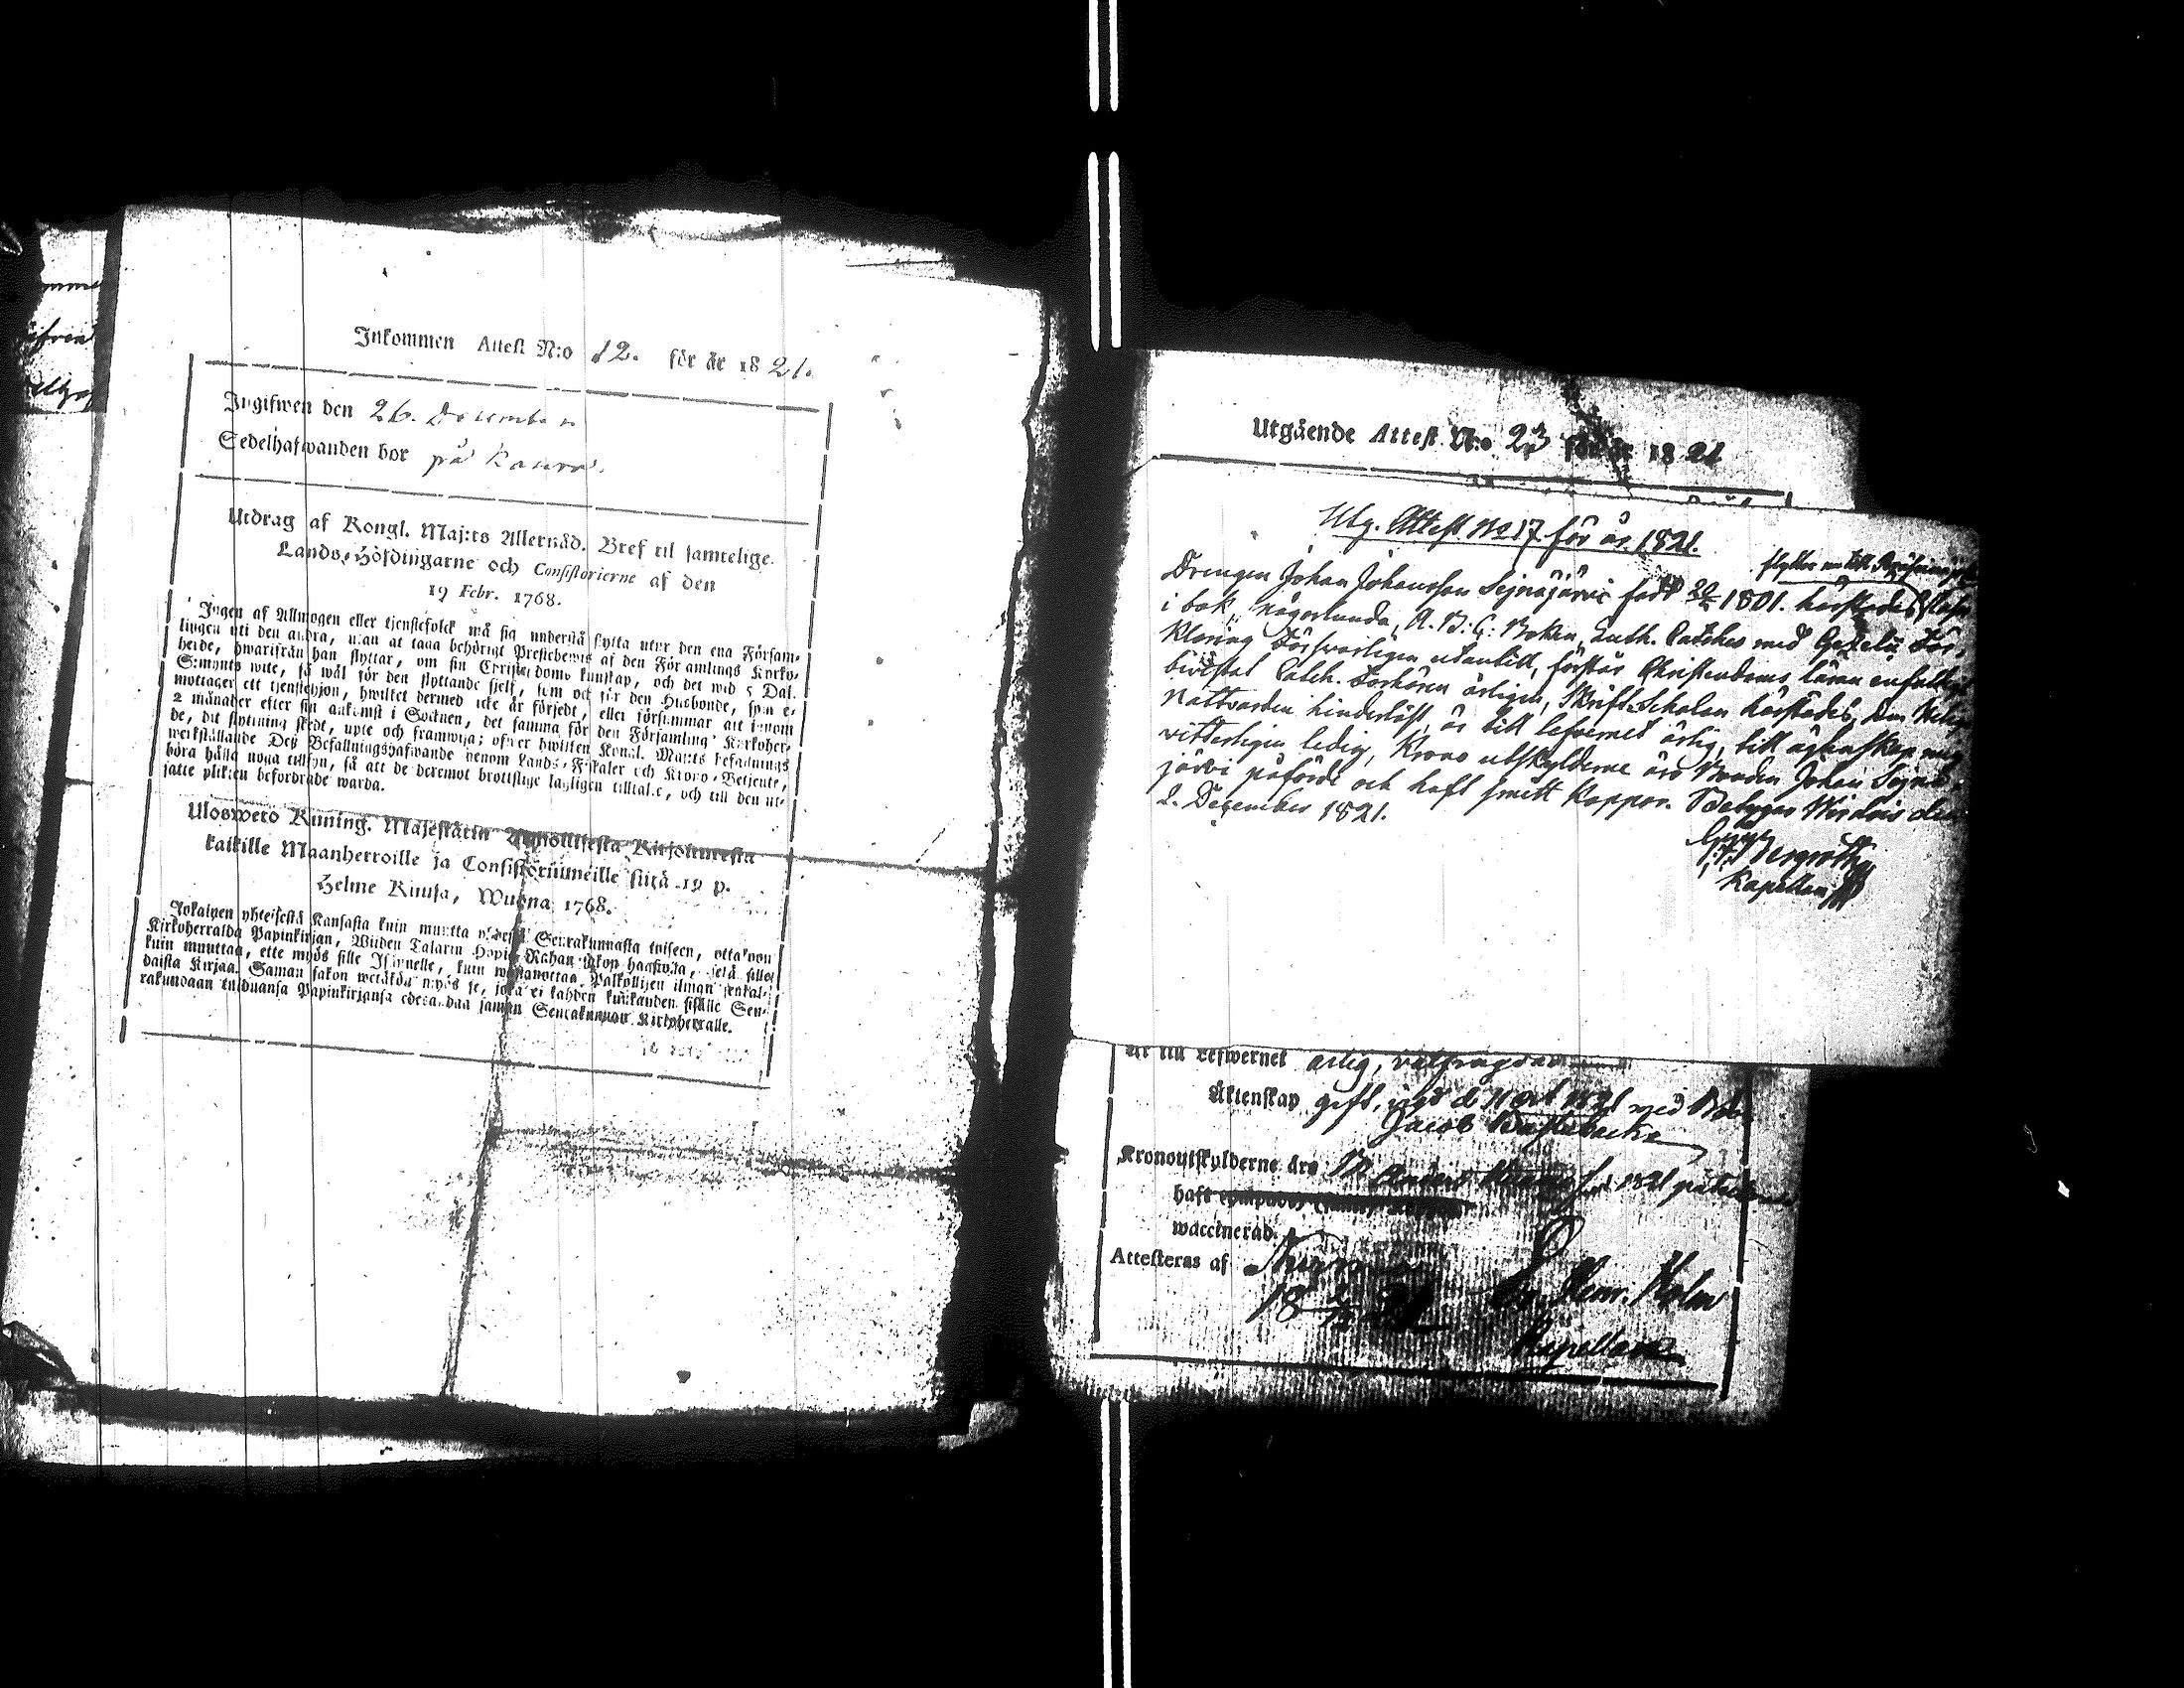 Inkommen Attest N:o 12. för år 1821.
Ingifwen den 26. December
Sedelhafwanden bor på Kaura.
Utdrag af Kongl. Maj:ts Allernåd. Bref til samtelige
Lands-Höfdingarne och Consistorierne af den
19 Febr. 1768.
Ingen af Allmogen eller tjenstefolck må sig understå flytta utur den ena Försam-
lingen uti den andra, utan at taga behörigt Prestebewis af den Församlings Kyrko-
herde, hwarifrån han flyttar, om sin Christendoms kunskap, och det wid 5 Dal.
S:mynts wite, så wäl för den flyttande sjelf, som och för den Husbonde, som e-
mottager ett tjenstehjon, hwilket dermed icke är försedt, eller försummar att innom
2 månader efter sin ankomst i Socknen, det samma för den Församlings Kyrkoher-
de, dit flyttning skedt, upte och framwisa; öfwer hwilken Kongl. Maj:ts befallnings
werkställande Deß Befallningshafwande genom Lands-Fiskaler och Krono-Betjente,
böra hålla noga tillsyn, så att de deremot brottslige lagligen tilltalas, och till den ut-
satte plikten befordrade warda.
Uloswetö Kuning. Majestätin Armollisesta Kirjoituxesta
kaikille Maanherroille ja Consistoriumeille siitä 19 p.
Helme Kuusa, Wuonna 1768.
Jokainen yhteisestä Kansasta kuin muutta yhdestä Seurakunnasta toiseen, ottakoon
Kirkoherralda Papinkirjan, Wiiden Talarin Hopia Rahan sakon haastolla, sekä sille
kuin muuttaa, ette myös sille Isännelle, kuin wastanottaa Palkollisen ilman senkal-
daista Kirjaa. Saman sakon wetäköön myös se, joka ei kahden kuukauden sisälle Seu-
rakundaan tulduansa Papinkirjansa edesandaa saman Seurakunnan Kirkoherralle.
Utgående Attest. N:o 23 för år 1821
Utg. Attest No 17. för år 1821.
flyttar nu till
Drengen Johan Johansson Sejnäjärvi född 1801. härstädes, läser
i bok någorlunda, A.B.C. Boken, Luth. Catches med Gezelii För-
klaring försvarligen utantill, förstår Christendoms läran enfaldigt
bivistat Catch. Förhören årligen, Skrift-Scholan härstädes, Den Helig
Nattvarden hinderlöst, är till lefvernet ärlig, till ägtenskap mig
vitterligen ledig, Krono utskylderne äro Bonden Johan Sejnä-
järvi påförde och haft smitt Koppor. Betygar Wirdois den
2. December 1821.
Bergroth
Kapellan
Är till Lefwernet ärlig, välfrägdad
Äktenskap gift, vigd d 11 Oct 1821 med
Jacob
Kronoutskylderne äro 1821 påförde
haft
waccinerad.
Attesteras af
Henr. Holm
Kapellan